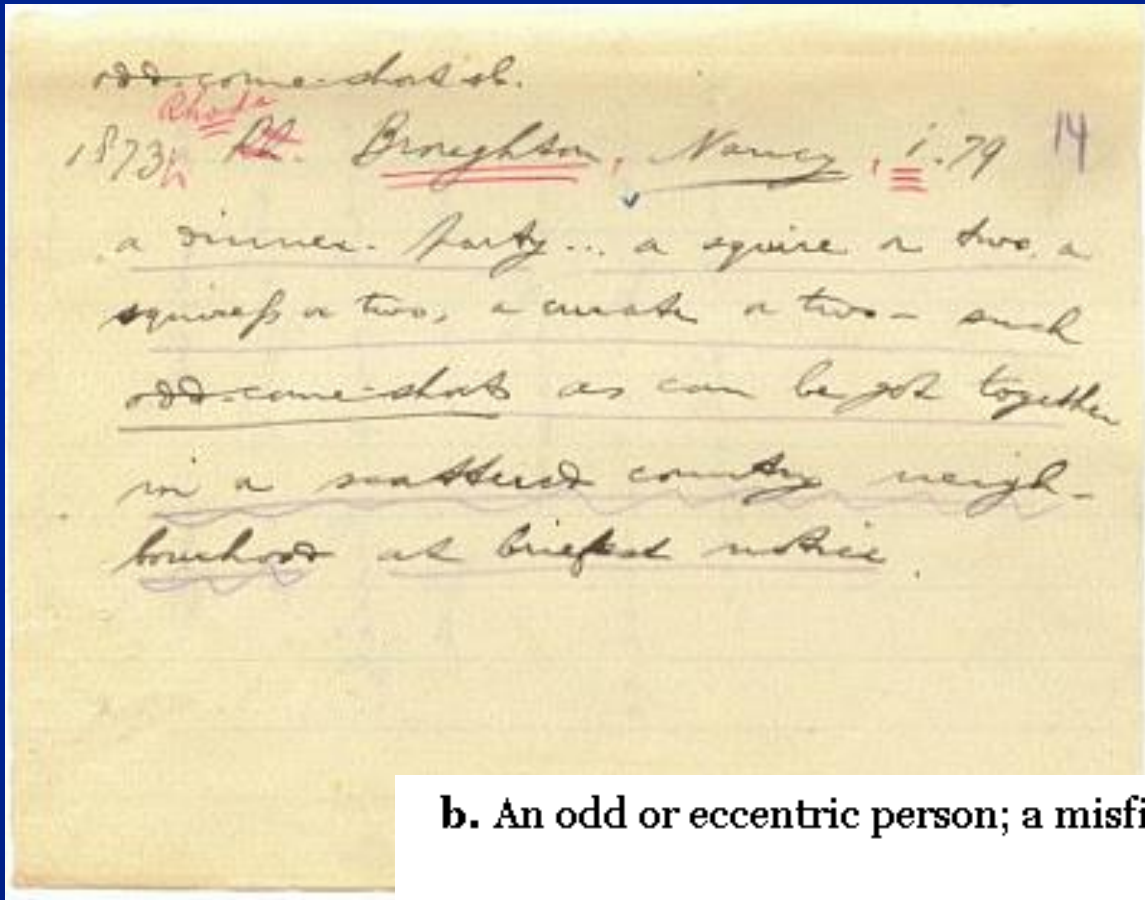 odd-come-short sb.
Rhoda
1873 R. Broughton, Nancy, i. 79 14
a dinner-party... a squire or two, a
squiress or two, a curate or two – such
odd-come-shorts as can be got together
in a scattered country neigh-
bourhood at briefest notice.
b. An odd or eccentric person; a misfi